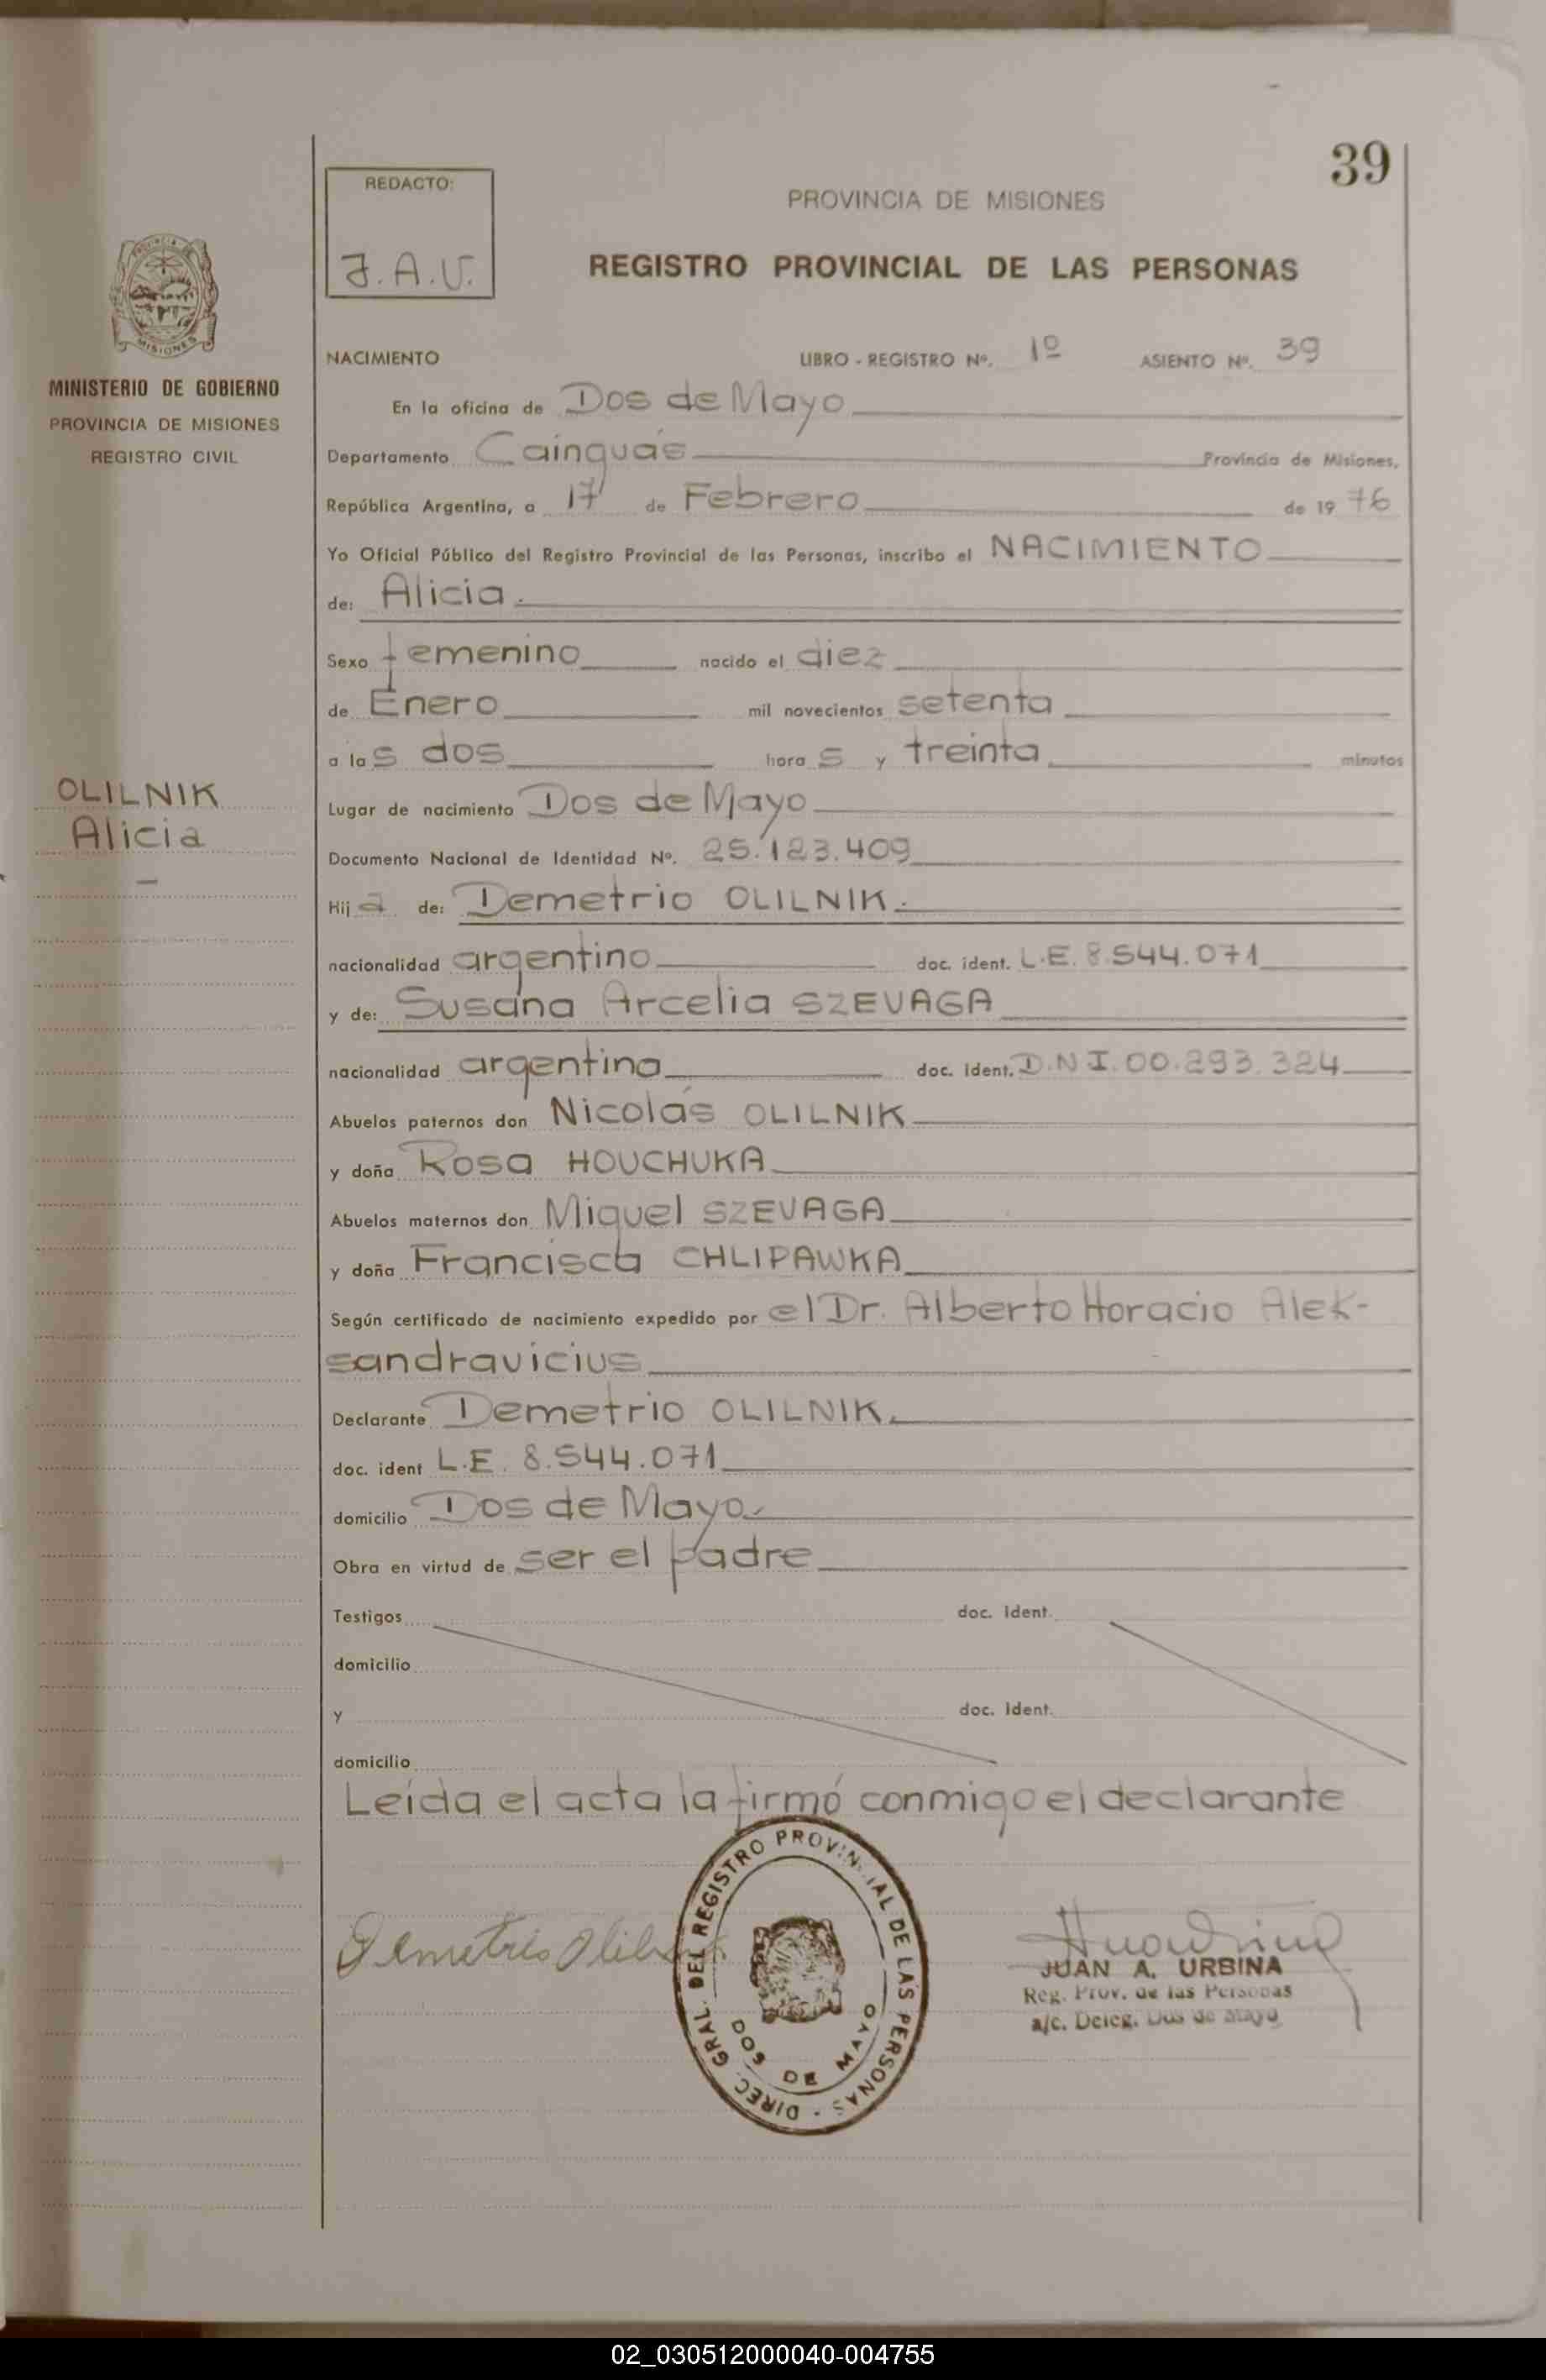 39
REDACTO:
J.A.U.
PROVINCIA DE MISIONES
REGISTRO PROVINCIAL DE LAS PERSONAS
PROVINCIA DE
MISIONES
MINISTERIO DE GOBIERNO
PROVINCIA DE MISIONES
REGISTRO CIVIL
NACIMIENTO LIBRO - REGISTRO Nº. 1º ASIENTO Nº. 39
En la oficina de Dos de Mayo
Departamento Cainguás Provincia de Misiones,
República Argentina, a 17 de Febrero de 19 76
Yo Oficial Público del Registro Provincial de las Personas, inscribo el NACIMIENTO
de: Alicia.
Sexo femenino nacido el diez
de Enero mil novecientos setenta
a las dos horas y treinta minutos
OLILNIK
Alicia
Lugar de nacimiento Dos de Mayo
Documento Nacional de Identidad Nº. 25.123.409
Hija de: Demetrio OLILNIK.
nacionalidad argentino doc. ident. L.E. 8.544.071
y de: Susana Arcelia SZEVAGA
nacionalidad argentina doc. ident. D.N.I. 00.293.324
Abuelos paternos don Nicolás OLILNIK
y doña Rosa HOUCHUKA
Abuelos maternos don Miguel SZEVAGA
y doña Francisca CHLIPAWKA
Según certificado de nacimiento expedido por el Dr. Alberto Horacio Alek-
sandravicius
Declarante Demetrio OLILNIK.
doc. ident L.E. 8.544.071
domicilio Dos de Mayo
Obra en virtud de ser el padre
Testigos doc. ident.
domicilio
y doc. ident.
domicilio
Leída el acta la firmó conmigo el declarante
DIREC. GRAL. DEL REGISTRO PROVINCIAL DE LAS PERSONAS -
DOS DE MAYO
Demetrio
JUAN A. URBINA
Reg. Prov. de las Personas
a/c. Deleg. Dos de Mayo
02_030512000040-004755